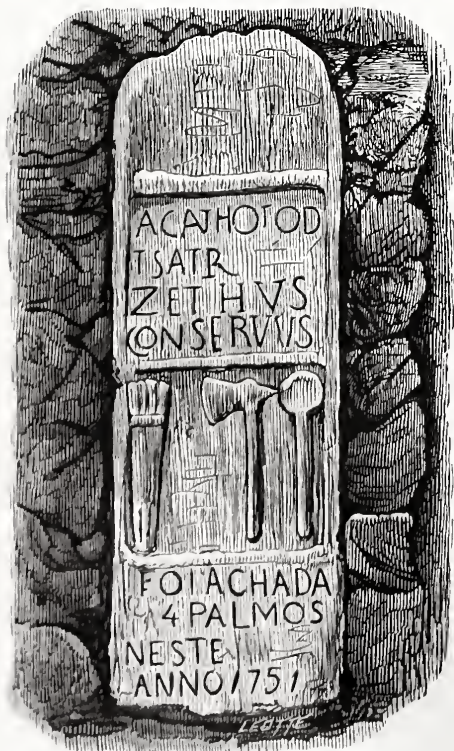 ACATHOTOD
TSATR
ZETHVS
CONSERVVS
FOI ACHADA
4 PALMOS
NESTE
ANNO 1751